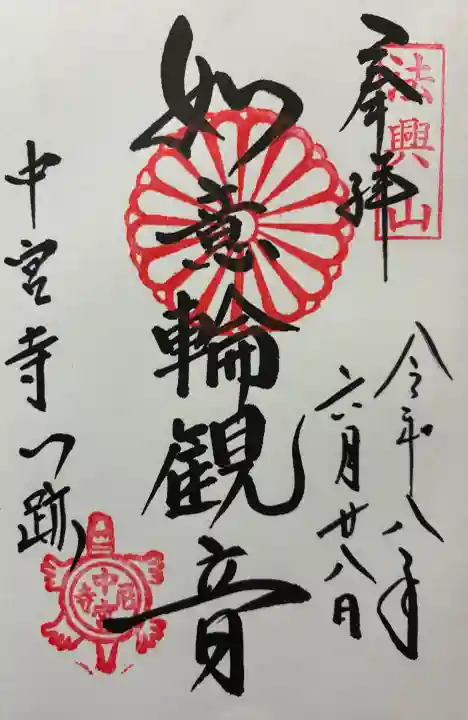 奉拝
法興山
令和八年
六月廿八日
如意輪観音
中宮寺門跡
中宮尼寺